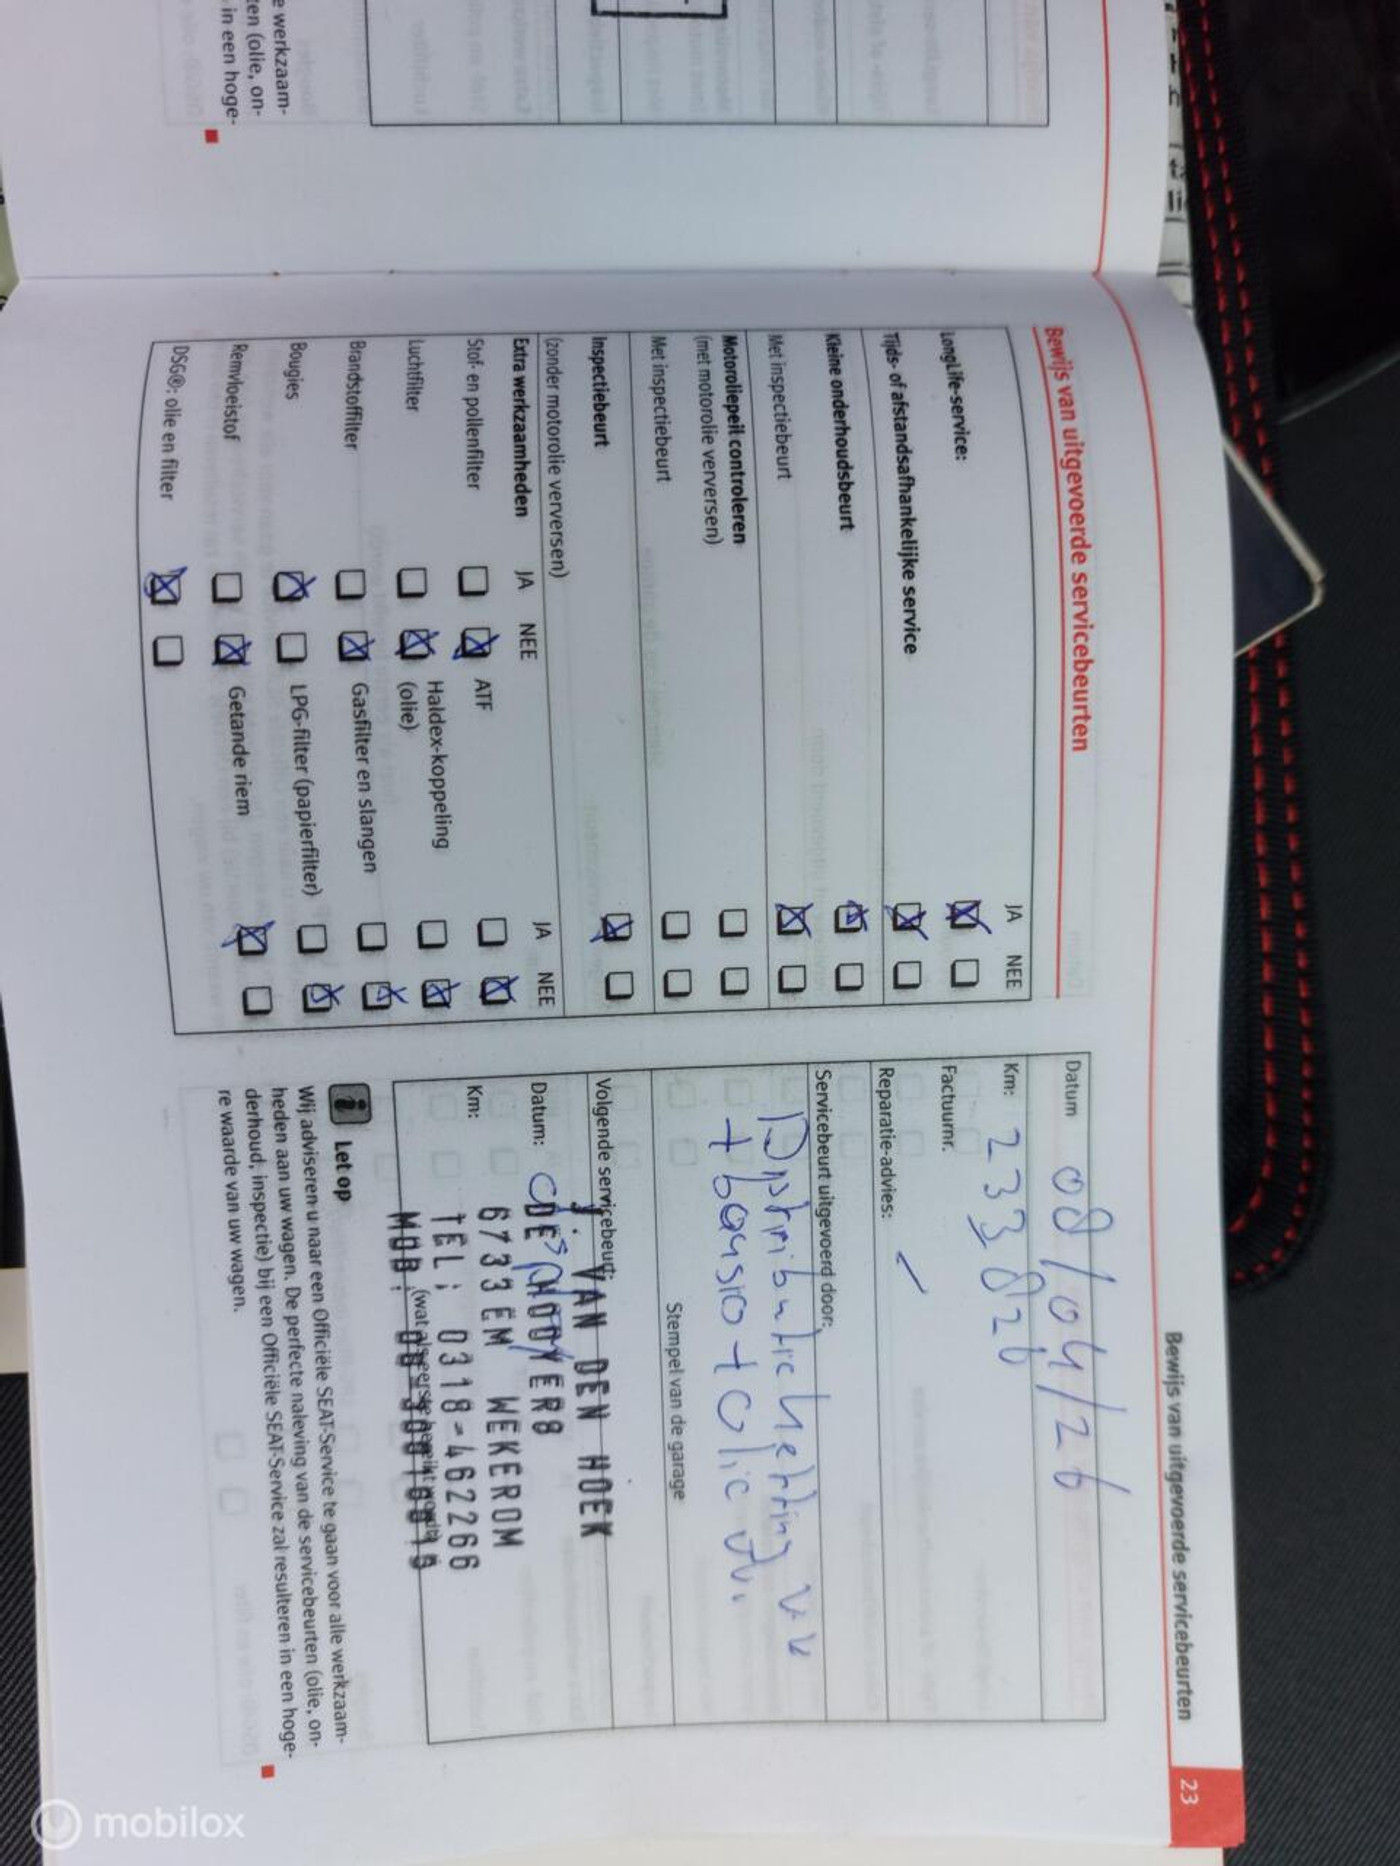 e werkzaam-
en (olie, on-
in een hoge-
Bewijs van uitgevoerde servicebeurten
23
Bewijs van uitgevoerde servicebeurten
JA NEE
LongLife-service:
Tijds- of afstandsafhankelijke service
Kleine onderhoudsbeurt
Met inspectiebeurt
Motoroliepeil controleren
(met motorolie verversen)
Met inspectiebeurt
Inspectiebeurt
(zonder motorolie verversen)
Extra werkzaamheden JA NEE JA NEE
Stof- en pollenfilter ATF
Luchtfilter Haldex-koppeling
(olie)
Brandstoffilter Gasfilter en slangen
Bougies LPG-filter (papierfilter)
Remvloeistof Getande riem
DSG®: olie en filter
Datum 08/04/26
Km: 233 826
Factuurnr.
Reparatie-advies:
Servicebeurt uitgevoerd door:
Distributie ketting vv
+ bougio + olie vv.
Stempel van de garage
Volgende servicebeurt:
J. VAN DEN HOEK
Datum:
6733 EM WEKEROM
Km:
TEL: 0318-462266
MOB:
Let op
Wij adviseren u naar een Officiële SEAT-Service te gaan voor alle werkzaam-
heden aan uw wagen. De perfecte naleving van de servicebeurten (olie, on-
derhoud, inspectie) bij een Officiële SEAT-Service zal resulteren in een hoge-
re waarde van uw wagen.
mobilox